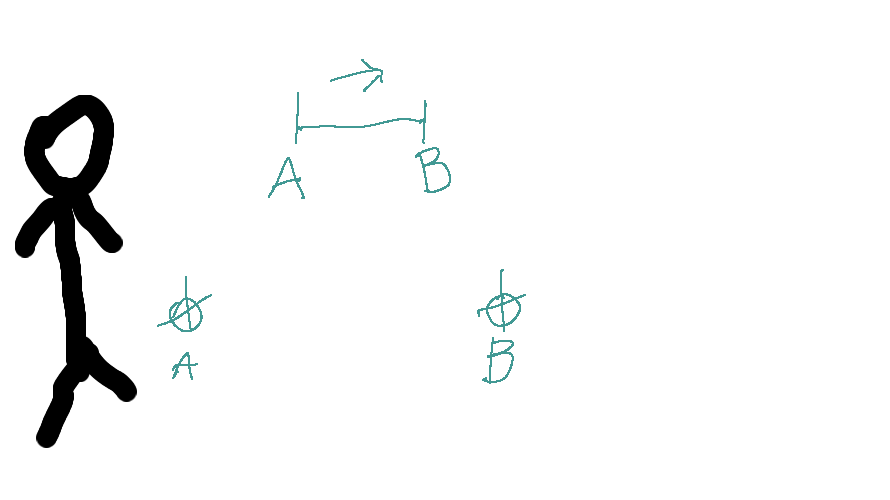 A B
A
B